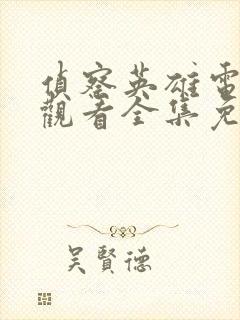 偵察英雄電
觀看全集免
吳賢德